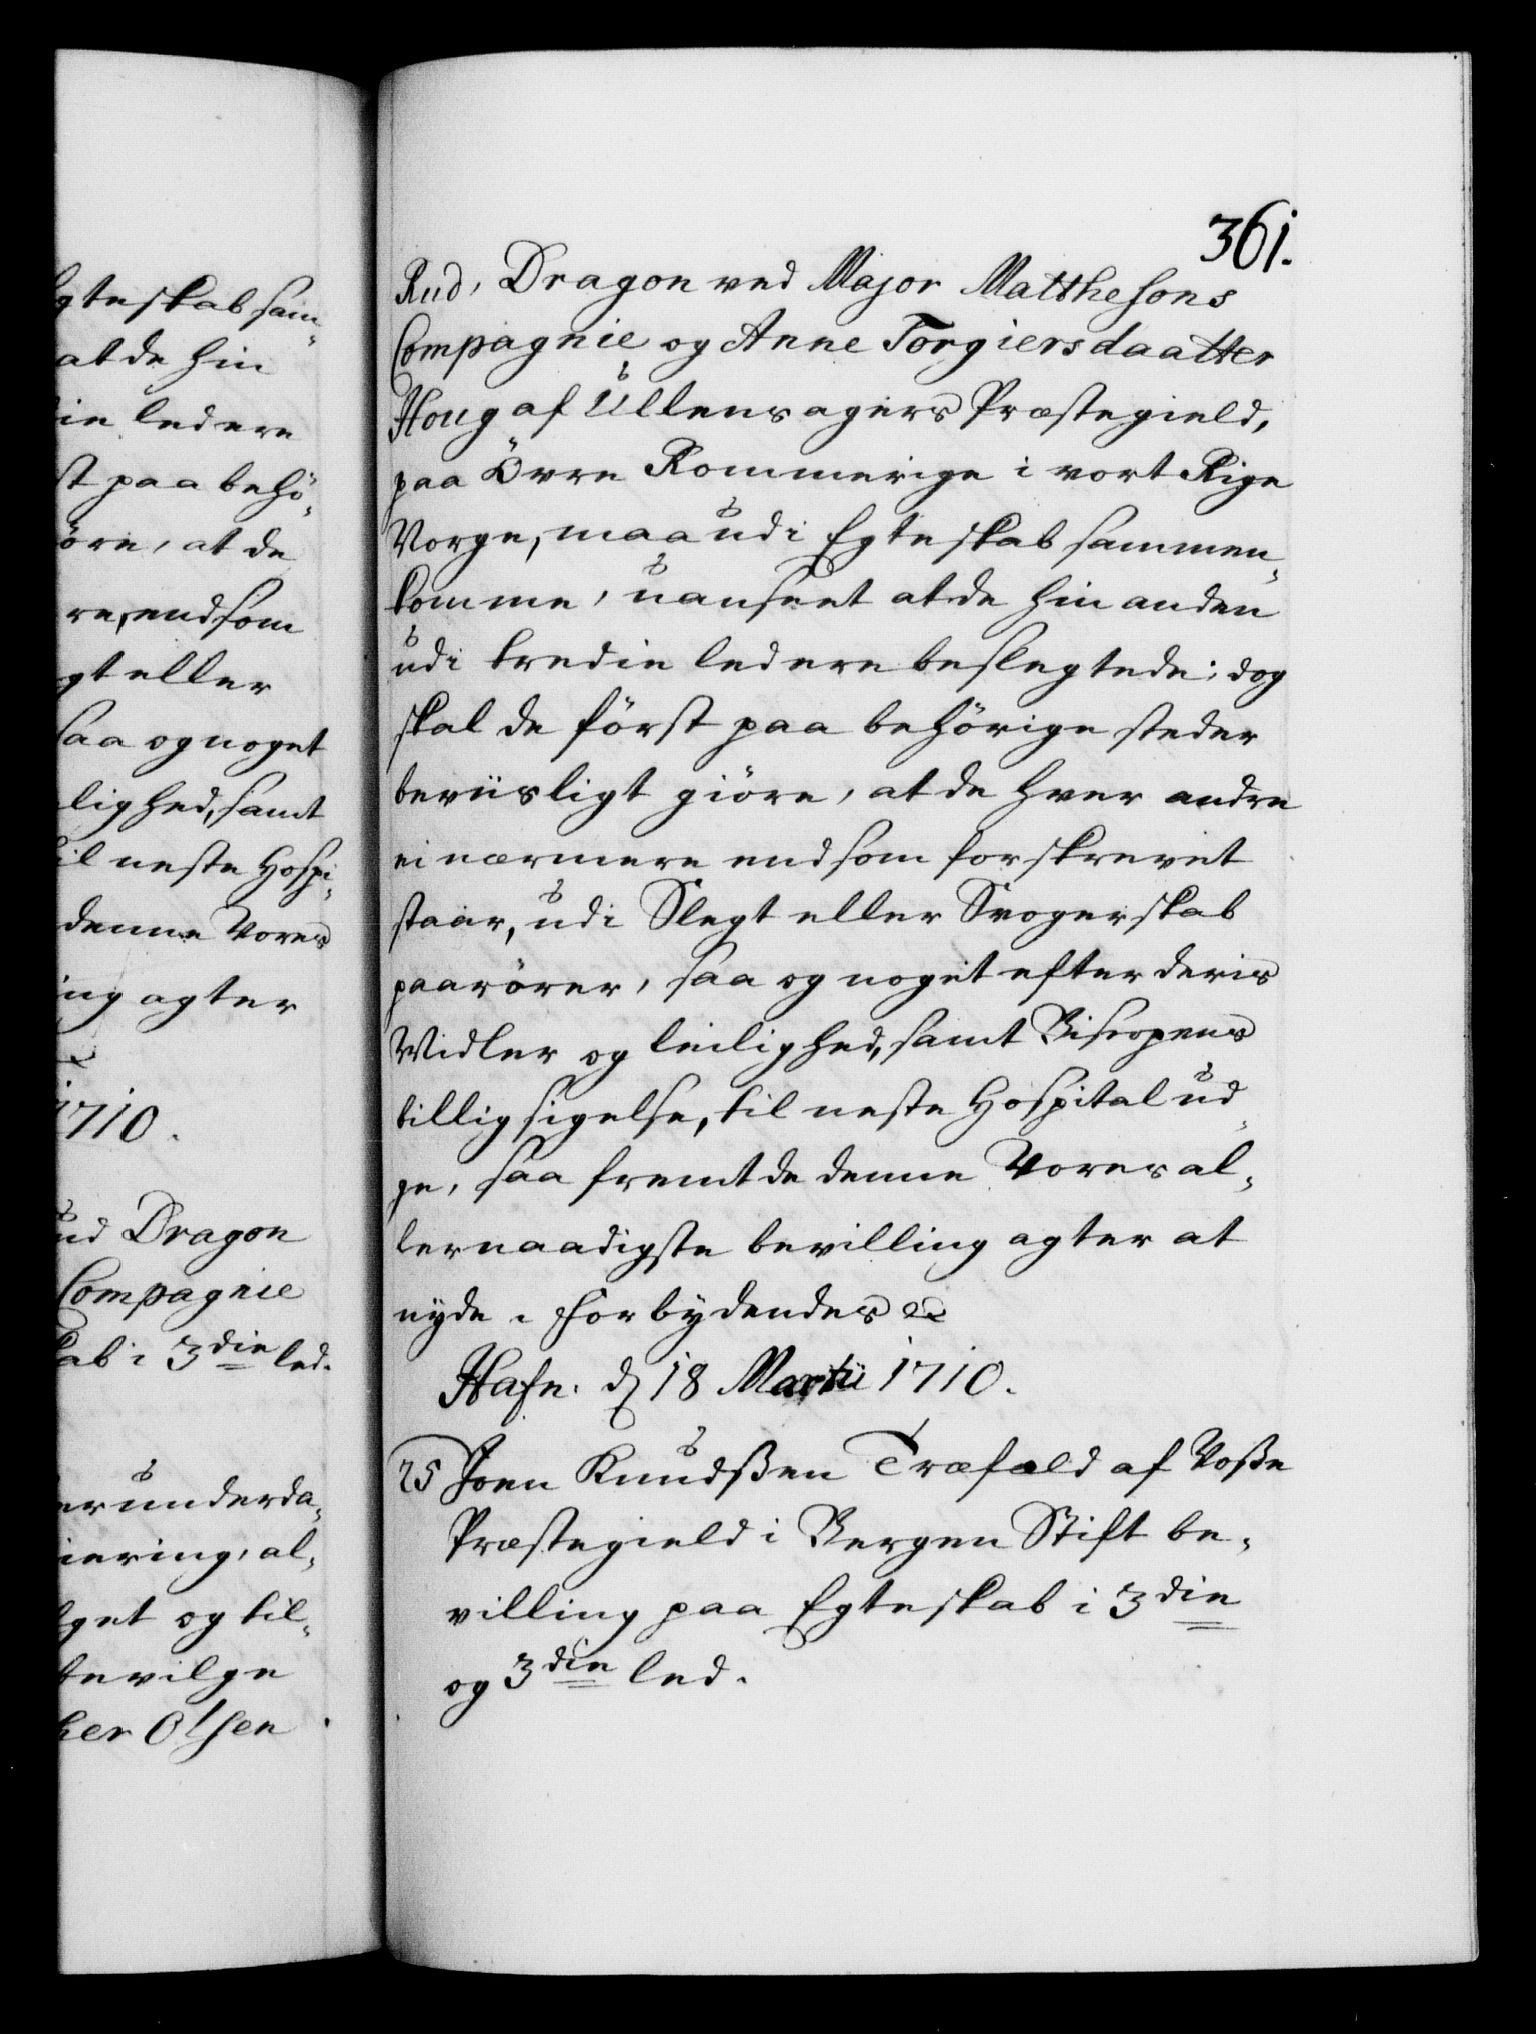 gteskab sam-
at de hin
ie led ere
st paa behö-
öre, at de
re, end som
gt eller
saa og noget
lighed, samt
il neste Hospi-
denne Vores
ing agter
1710.
ud Dragon
Compagnie
kab i 3die led.
er underda-
iering, al-
get og til-
bevilge
her Olsen
361.
Rud, Dragon ved Major Matthesons
Compagnie og Anne Torgiersdaatter
Houg af Ullensagers Præstegield,
paa Övre Rommerige i vort Rige
Norge, maa udi Egteskab sammen-
komme, uanseet at de hin anden
udi tredie led ere beslegtede; dog
skal de först paa behörige steder
beviisligt giöre, at de hver andre
ei nærmere end som forskrevet
staar, udi Slegt eller Svogerskab
paarörer, saa og noget efter deris
Midler og leilighed, samt Biscopens
tilligsigelse, til neste Hospital ud-
ge, saa fremt de denne Vores al-
lernaadigste bevilling agter at
nyde. Forbydendes &c
Hafn. d 18 Martii 1710.
25 Joen Knudßen Træfald af Voße
Præstegield i Bergen Stift be-
villing paa Egteskab i 3die
og 3die led.